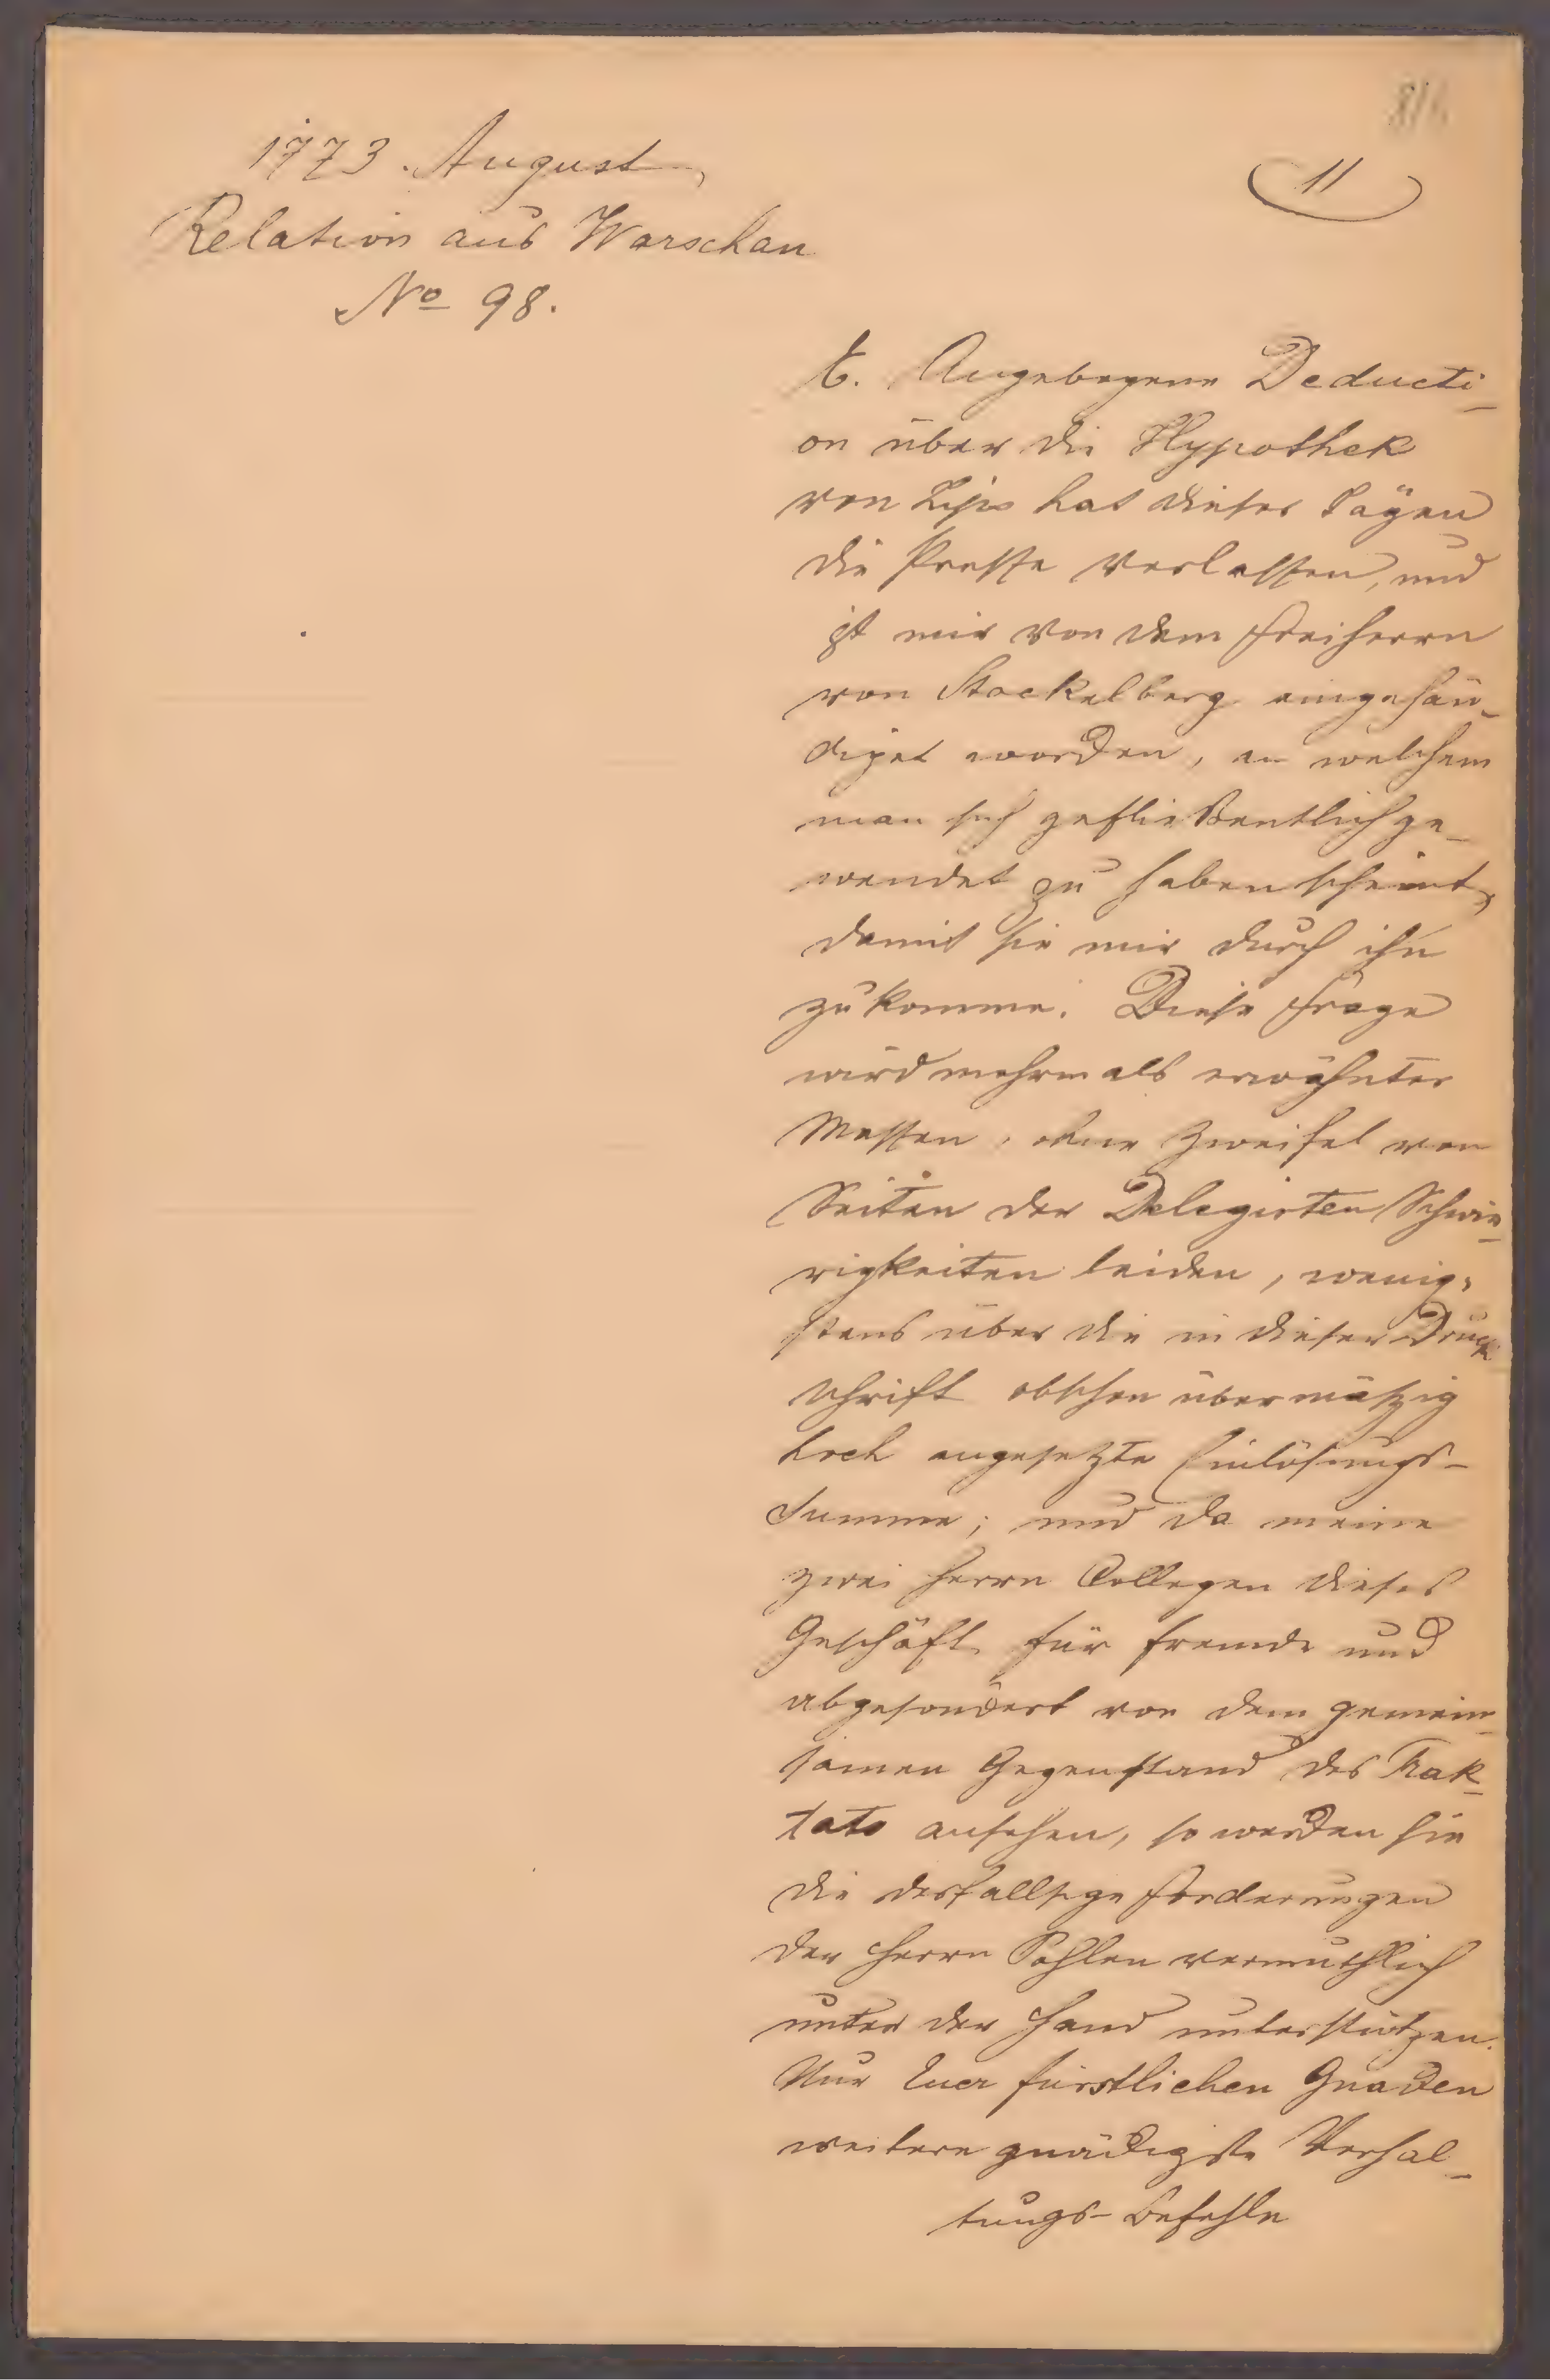 1773. August,
11
Relation aus Warschau
No 98.
t. Angebogene Deducti-
on über die Hypothek
von Zips hat dieser Tägen
die Presse verlassen, und
ist mir von dem Freiherrn
von Stackelberg eingehän-
diget worden, an welchem
man sich gefließentlich ge-
wendet zu haben scheint,
damit sie mir durch ihn
zukomme. Diese Frage
wird mehrmals erwähnter
Massen, ohne Zweifel von
Seiten der Delegirten Schwie-
rigkeiten leiden, wenig-
stens über die in dieser Druck
schrift obschon übermäßig
hoch angesetzte Einlösungs-
Summe; und da meine
zwei Herrn Collegen dieses
Geschäft für fremde und
abgesondert von dem gemein-
samen Gegenstand des Trak-
tats ansehen, so werden sie
die desfallsige Forderungen
der Herrn Pohlen vermuthlich
unter der Hand unterstützen.
Nur Euer fürstlichen Gnaden
weitere gnädigste Verhal-
tungs-Befehle